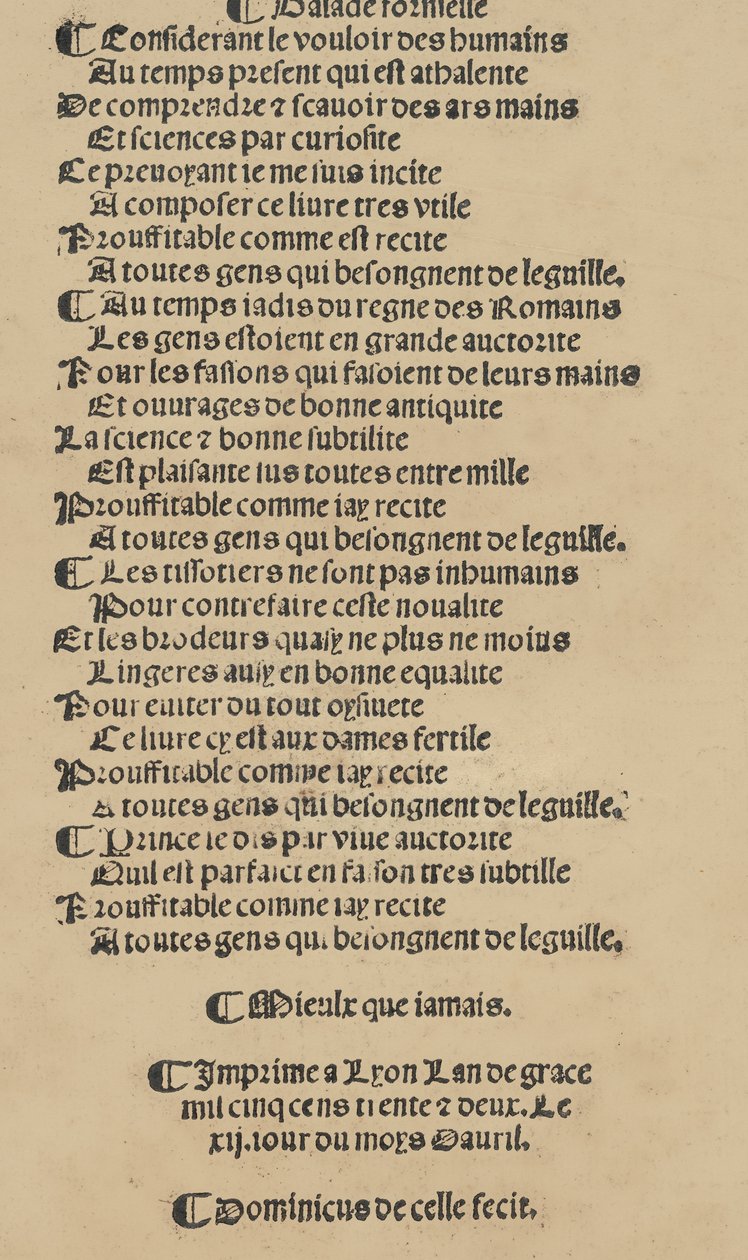 ¶ Balade formelle
¶ Considerant le vouloir des humains
Au temps present qui est athalente
De comprendre ⁊ scauoir des ars mains
Et sciences par curiosite
Ce preuoyant ie me suis incite
A composer ce liure tres vtile
Prouffitable comme est recite
A toutes gens qui besongnent de leguille.
¶ Au temps iadis du regne des Romains
Les gens estoient en grande auctorite
Pour les fassons qui fasoient de leurs mains
Et ouurages de bonne antiquite
La science ⁊ bonne subtilite
Est plaisante sus toutes entre mille
Prouffitable comme iay recite
A toutes gens qui besongnent de leguille.
¶ Les tissotiers ne sont pas inhumains
Pour contrefaire ceste noualite
Et les brodeurs quasy ne plus ne moins
Lingeres ausy en bonne equalite
Pour euiter du tout oysiuete
Ce liure cy est aux dames fertile
Prouffitable comme iay recite
A toutes gens qui besongnent de leguille.
¶ Prince ie dis par viue auctorite
Quil est parfaict en fason tres subtille
Prouffitable comme iay recite
A toutes gens qui besongnent de leguille.
¶ Mieulx que iamais.
¶ Imprime a Lyon Lan de grace
mil cinq cens trente ⁊ deux. Le
xij. iour du moys Dauril.
¶ Dominicus de celle fecit.